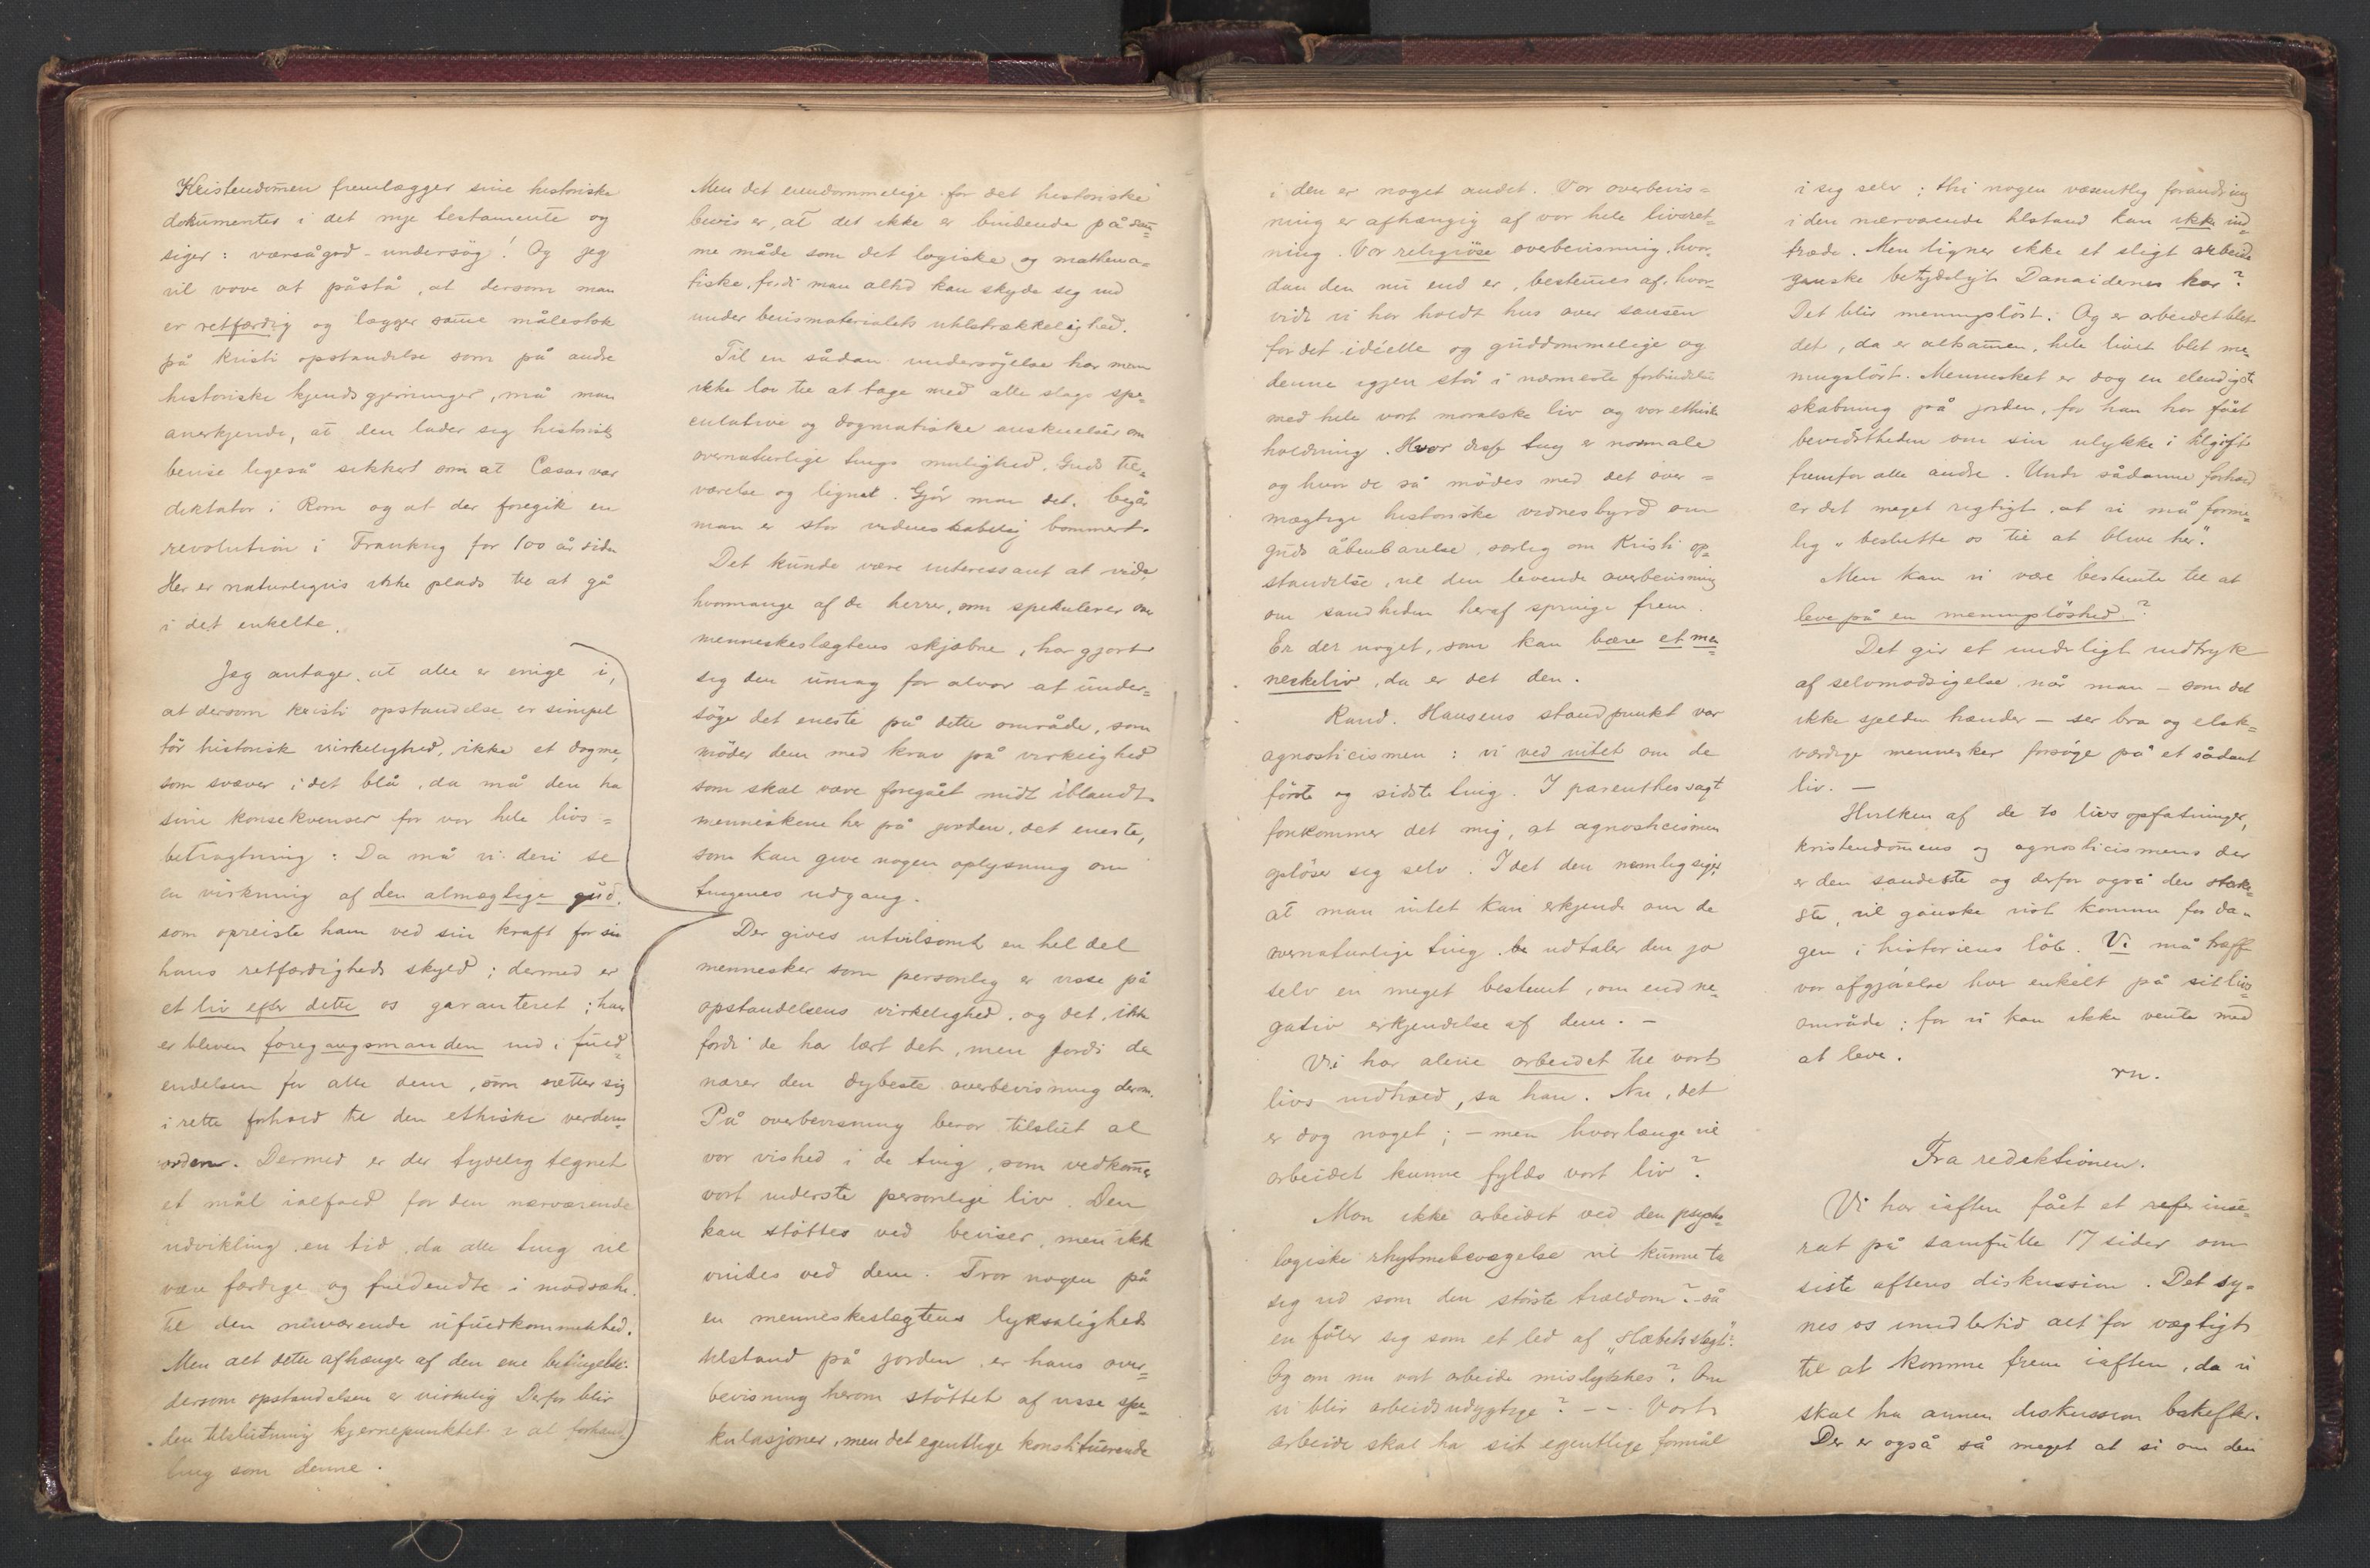 Kristendom̄en fremlægger sine historiske
dokumenter i det nye testamente og
siger: værsågod - undersøg! Og jeg
vil vove at påstå, at dersom man
er retfærdig og lægger sam̄e målestok
på Kristi opstandelse som på andre
historiske kjendsgjerninger, må man
anerkjende, at den lader sig historisk
bevise ligeså sikkert som at Cæsar var
diktator i Rom og at der foregik en
revolution i Frankrig for 100 år siden
Her er naturligvis ikke plads til at gå
i det enkelte.
Jeg antager, at alle er enige i,
at dersom Kristi opstandelse er simpel
tør historisk virkelighed, ikke et dogme,
som svæver i det blå, da må den ha
sine konsekvenser for vor hele livs=
betragtning: Da må vi deri se
en virkning af den almægtige gud,
som opreiste ham ved sin kraft for
hans retfærdigheds skyld; dermed er
et liv efter dette os garanteret; han
er bleven foregangsmanden ind i fuld=
endelsen for alle dem, som sætter sig
i rette forhold til den ethiske verdens=
orden. Dermed er der tydelig tegnet
et mål ialfald for den nærværende
udvikling, en tid, da alle ting vil
være færdige og fuldendte i modsætn.
til den nuværende ufuldkommenhed.
Men alt dette afhænger af den ene betingelse:
dersom opstandelsen er virkelig Derfor blir
den tilslutning kjernepunktet i al forhand=
ling som denne.
Men det eiendommelige for det historiske
bevis er, at det ikke er bindende på sam̄=
me måde som det logiske og mathema=
tiske, fordi man altid kan skyde sig ind
under bevismaterialets utilstrækkelighed.
Til en sådan undersøgelse har man
ikke lov til at tage med alle slags spe=
culative og dogmatiske anskuelser om
overnaturlige tings mulighed, Guds til=
værelse og lignet. Gjør man det, begår
man en stor videnskabelig bommert.
Det kunde være interessant at vide,
hvormange af de herrer, som spekulerer over
menneskeslægtens skjæbne, har gjort
sig den umag for alvor at under=
søge det eneste på dette område, som
møder dem med krav på virkelighed
som skal være foregået midt iblandt
menneskene her på jorden, det eneste,
som kan give nogen oplysning om
tingenes udgang.
Der gives utvilsomt en hel del
mennesker som personlig er visse på
opstandelsens virkelighed, og det, ikke
fordi de har lært det, men fordi de
nærer den dybeste overbevisning derom.
På overbevisning beror tilslut al
vor vished i de ting, som vedkom̄er
vort inderste personlige liv. Den
kan støttes ved beviser, men ikke
vindes ved dem. Tror nogen på
en menneskeslægtens lyksalighed
tilstand på jorden, er hans over=
bevisning herom støttet af visse spe=
kulasjoner, men det egentlige konstituerende
i den er noget andet. Vor overbevis=
ning er afhængig af vor hele livsret=
ning. Vor religiøse overbevisning, hvor=
dan den nu end er, bestemes af, hvor=
vidt vi har holdt hus over sansen
for det idéelle og guddommelige og
denne igjen står i nærmeste forbindelse
med hele vort moralske liv og vor ethiske
holdning. Hvor disse ting er normale
og hvor de så mødes med det over=
mægtige historiske vidnesbyrd om
guds åbenbarelse, særlig om Kristi op=
standelse, vil den levende overbevisning
om sandheden heraf springe frem.
Er der noget, som kan bære et men=
neskeliv, da er det den.
Kand. Hansens standpunkt var
agnosticismen: vi ved intet om de
første og sidste ting. I parenthes sagt
forekommer det mig, at agnosticismen
opløser sig selv. I det den nemlig siger
at man intet kan erkjende om de
overnaturlige ting, udtaler den jo
selv en meget bestemt, om end ne=
gativ erkjendelse af dem. -
Vi har alene arbeidet til vort
livs indhold, sa han. Nu, det
er dog noget; - men hvorlænge vil
arbeidet kunne fylde vort liv?
Mon ikke arbeidet ved den psycho=
logiske rhytmebevægelse vil kunne ta
sig ud som den største trældom? - så
en føler sig som et led af „Slæbets slægt":
Og om nu vort arbeide mislykkes? Om
vi blir arbeidsudygtige? - - Vort
arbeide skal ha sit egentlige formål
i sig selv; thi nogen væsentlig forandring
i den nærværende tilstand kan ikke ind=
træde. Men ligner ikke et sligt arbeide
ganske betydeligt Danaidernes kar?
Det blir meningsløst. Og er arbeidet blet
det, da er altsam̄en, hele livet blet me=
ningsløst. Mennesket er dog en elendigste
skabning på jorden, for han har fået
bevidstheden om sin ulykke i tilgift
fremfor alle andre. Under sådanne forhold
er det meget rigtigt, at vi må forme=
lig „beslutte os til at blive her".
Men kan vi være bestemte til at
leve på en meningsløshed?
Det gir et underligt indtryk
af selvmodsigelse, når man - som det
ikke sjelden hænder - ser bra og elsk=
værdige mennesker forsøge på et sådant
liv. -
Hvilken af de to livsopfatninger,
kristendom̄ens og agnosticismens der
er den sandeste og derfor også den stærke=
ste, vil ganske vist komme for da=
gen i historiens løb. Vi må træffe
vor afgjørelse hver enkelt på sit livs=
område; for vi kan ikke vente med
at leve.
rn.
Fra redaktionen.
Vi har iaften fået et refer inse=
rat på samfulle 17 sider om
siste aftens diskussion. Det sy=
nes os imidlertid alt for vægtigt
til at komme frem iaften, da vi
skal ha annen diskussion bakefter.
Der er også så meget at si om den